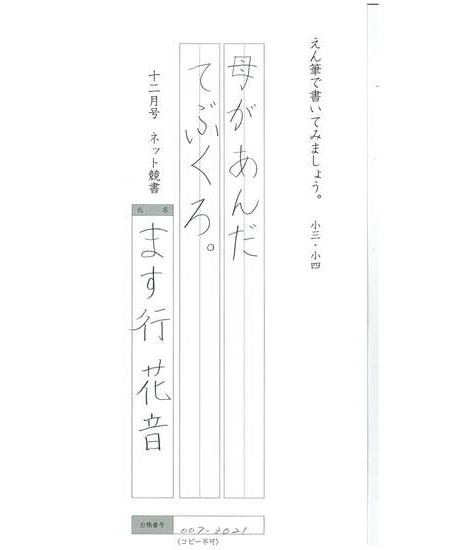 えん筆で書いてみましょう。　小三・小四
母があんだ
てぶくろ。
十二月号　ネット競書
氏名
ます行 花音
台帳番号
007-3021
(コピー不可)